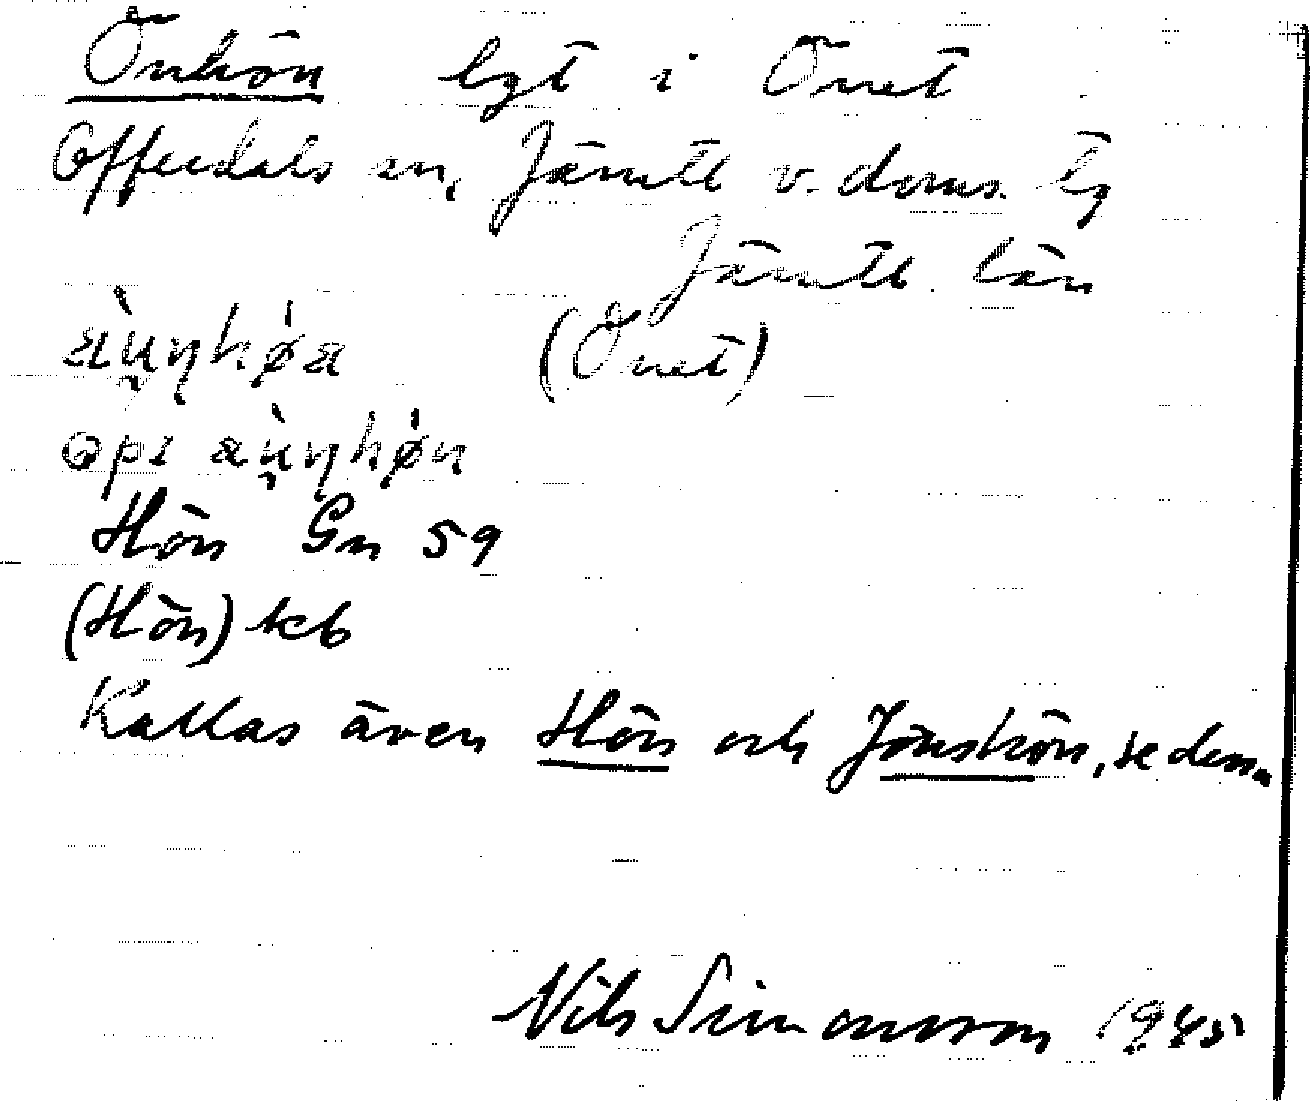 Önhön lgt i Önet
Offerdals sn, Jämtl v. doms. lg
Jämtl. län
(Önet)
Hön Gn 59
(Hön) kb
Kallas även Hön och Jönshön, se denna
Nils Simonsson 1945